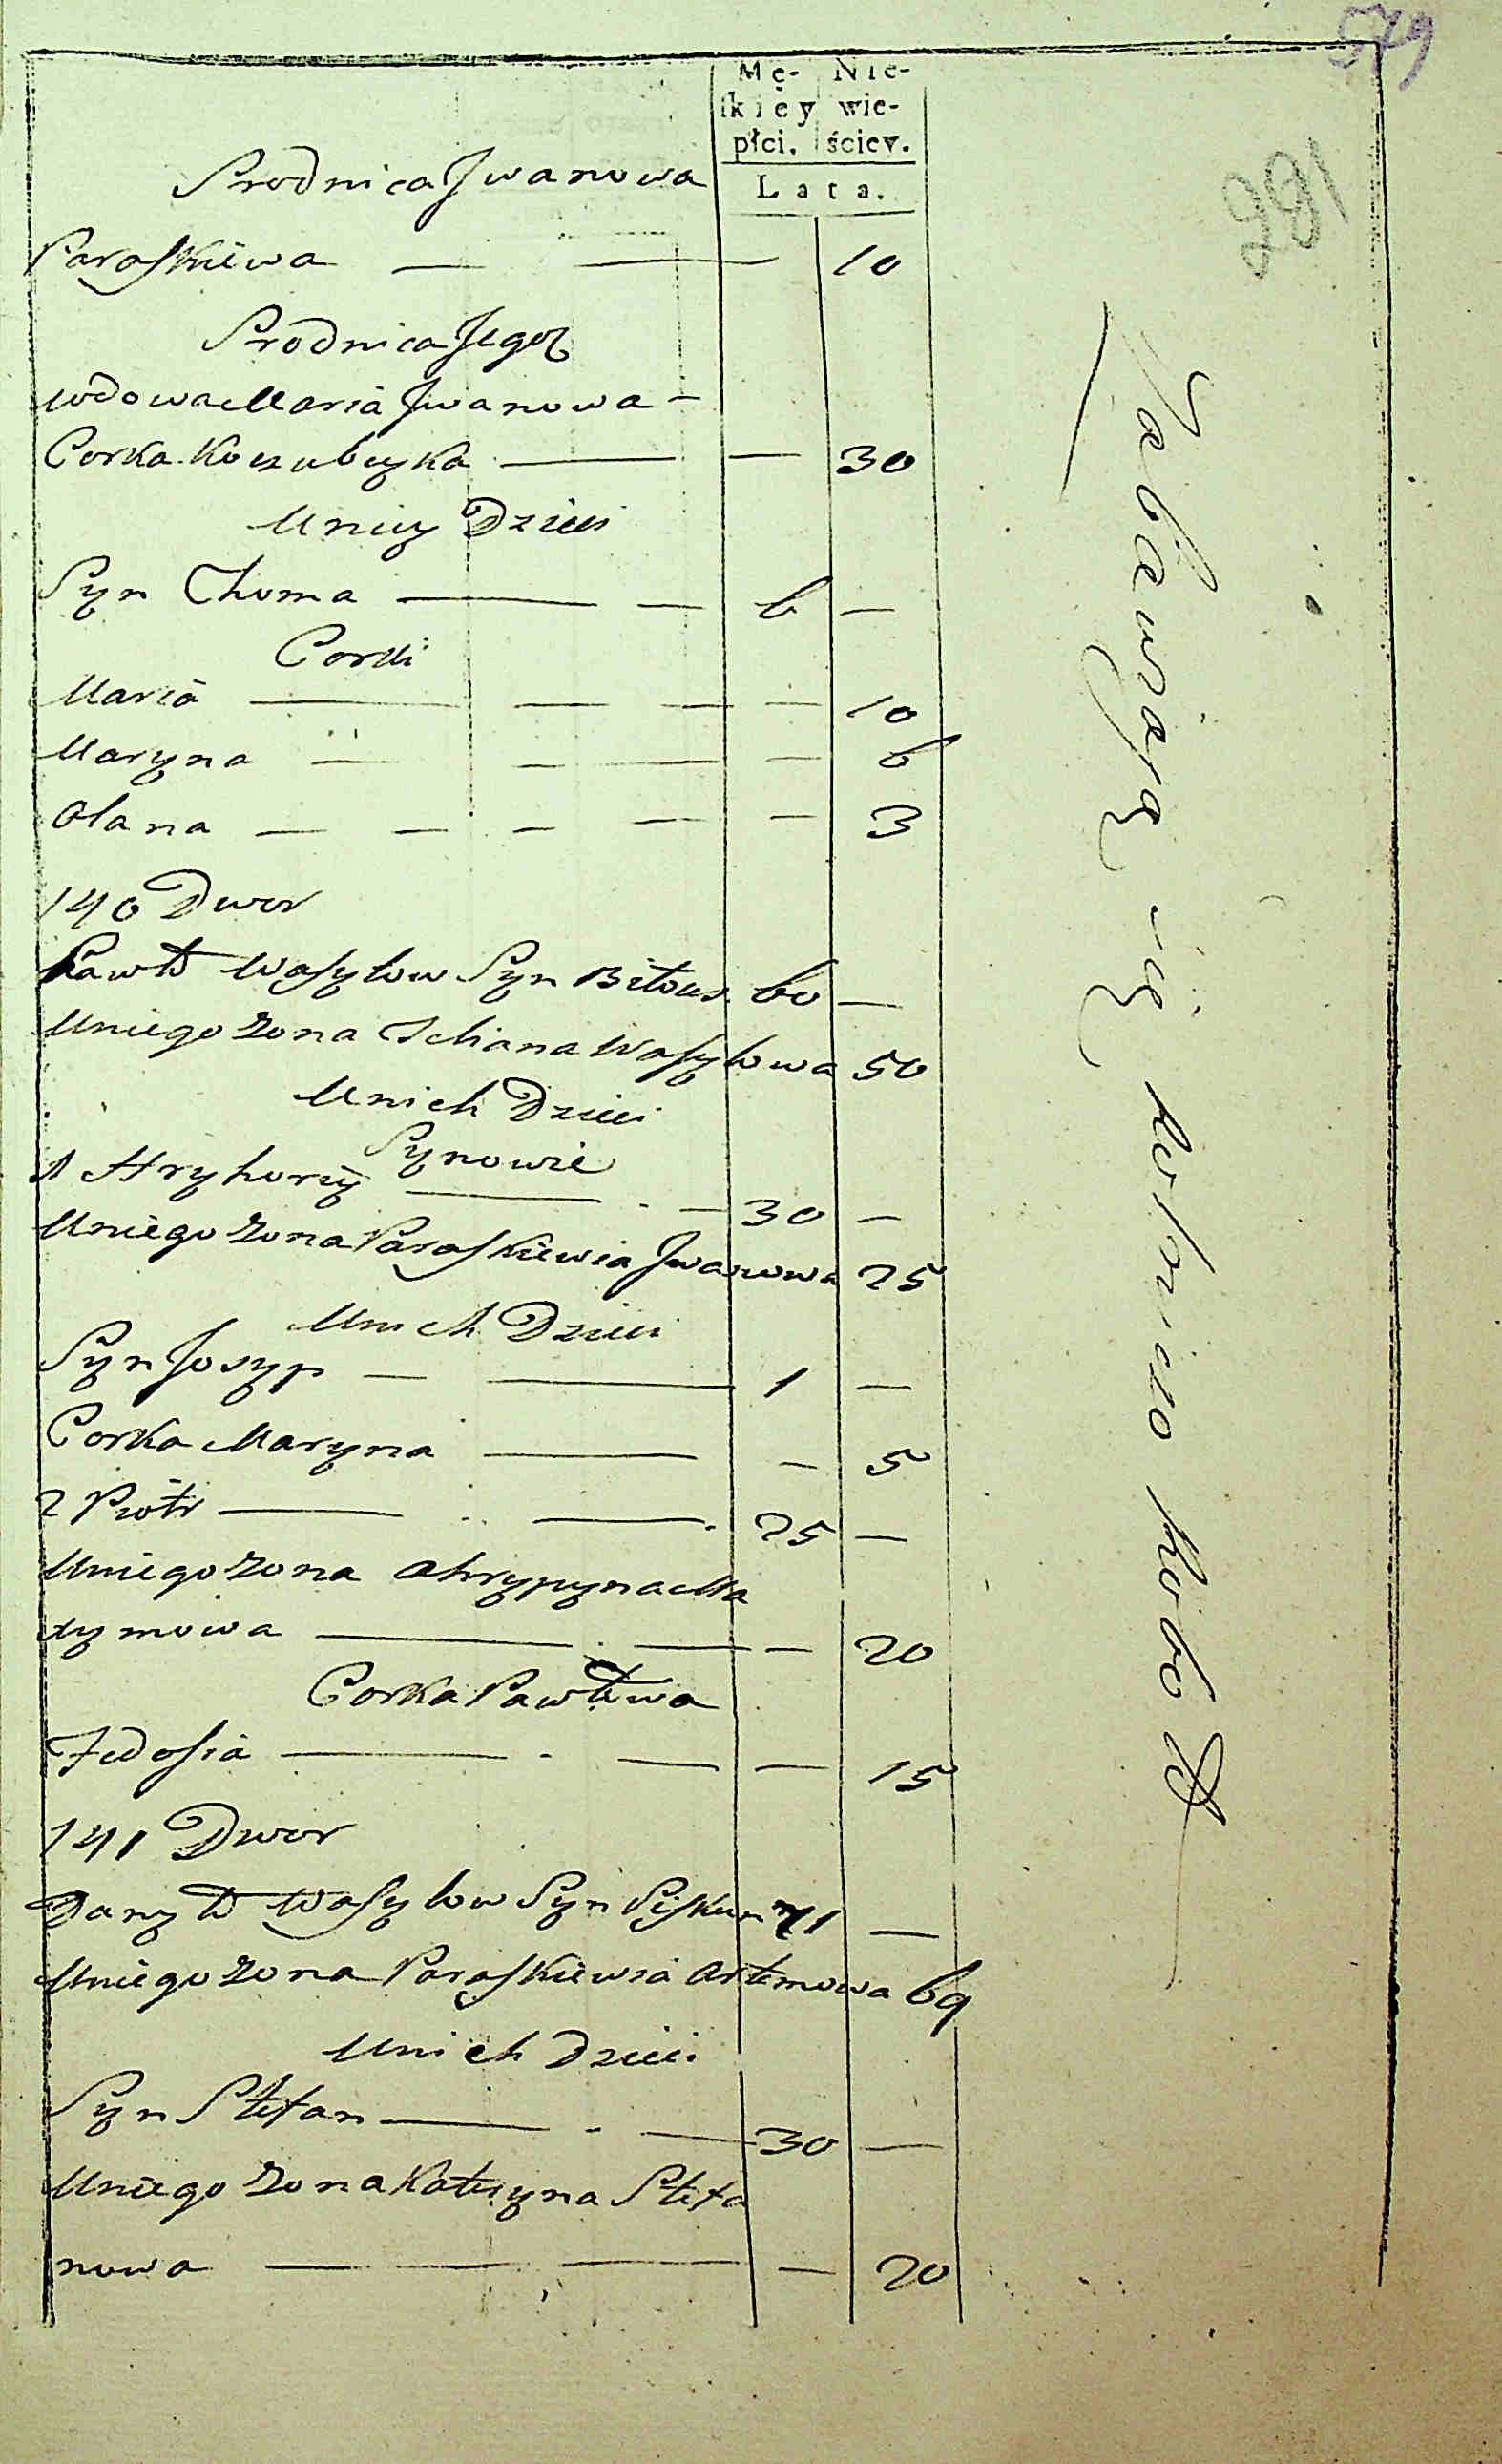 579
291
Mę- Nie-
ſkiey wie-
płci. ściey.
Lata.
Srodnica Jwanowa
Paraſkiewa — — 10
Srodnica Jego
wdowa Maria Jwanowa -
Corka Kozubuyka — — 30
Uniey Dzieci
Syn Choma — — 6 —
Corki
Maria — — — — 10
Maryna — — — — 6
Olana — — — — — 3
140 Dwor
Pawło Wasylow Syn Biłous 60 —
Uniego Zona Jchana Wasylowa 50
Unich Dzieci
Synowie
1 Hryhory — — 30 —
Uniego Zona Paraſkiewia Jwanowa 25
Unich Dzieci
Syn Josyp — — 1 —
Corka Maryna — — 5
2 Piotr — — 25 —
Uniego Zona Ahrypyna Ma
xymowa — — — 20
Corka Pawłowa
Fedosia — — — 15
141 Dwor
Daryło Wasylow Syn Piſkun 71 —
Uniego Zona Paraſkiewia Artemowa 69
Unich Dzieci
Syn Stefan — — 30 —
Uniego Zona Kateryna Stefa
nowa — — — 20
Zabawiaią się rolniczo robotą